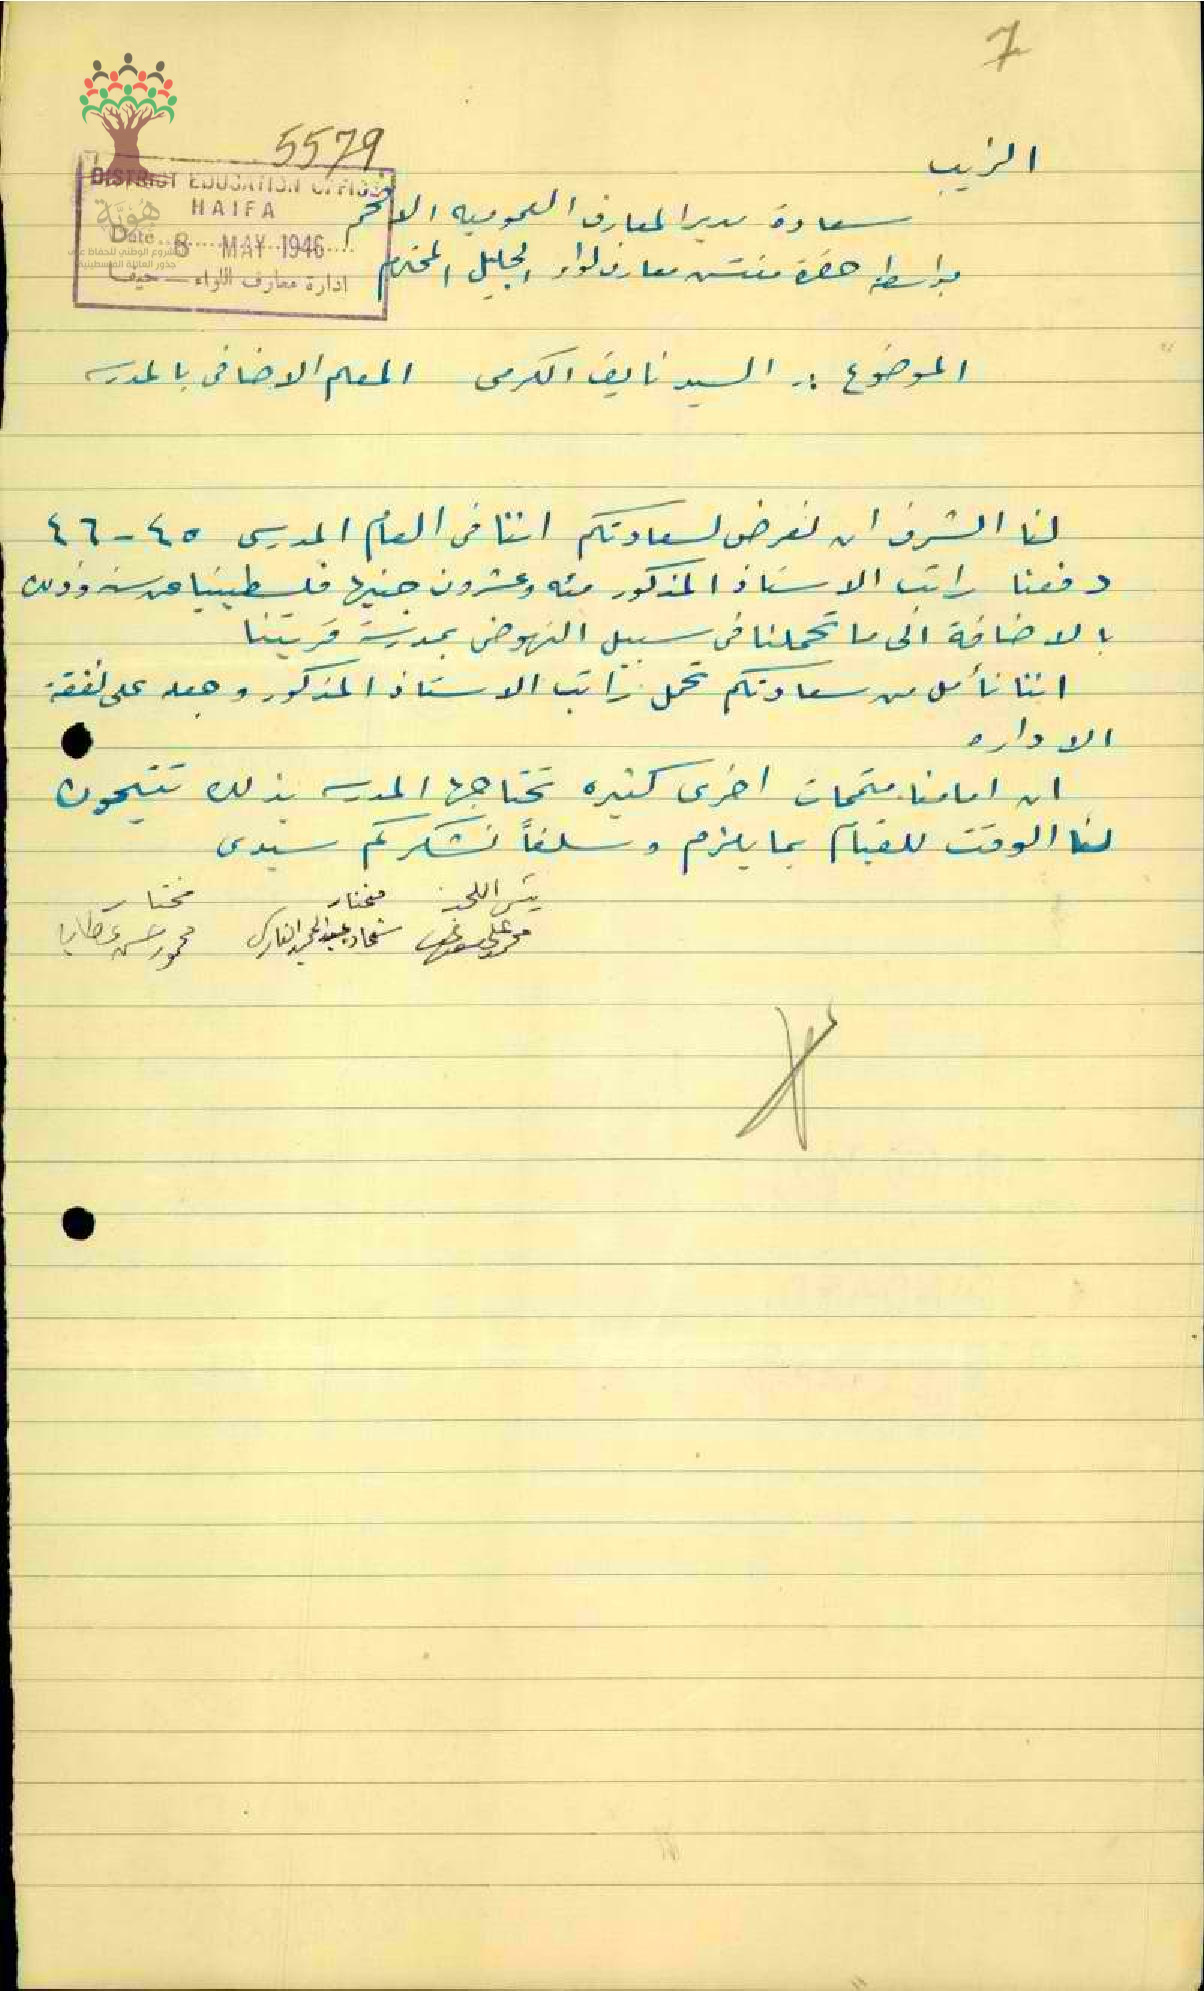 7
5579
DISTRICT EDUCATION OFFICE
HAIFA
Date 8 MAY 1946
ادارة معارف اللواء — حيفا
هُوِيَّة
المشروع الوطني للحفاظ على
جذور العائلة الفلسطينية
الزيب
سعادة مدير المعارف العموميه الافخم
بواسطة حضرة مفتش معارف لواء الجليل المحترم
الموضوع :ـ السيد نايف الكرمي المعلم الاضافي بالمدرسه
لنا الشرف ان نعرض لسعادتكم اننا في العام المدرسي ٤٥-٤٦
دفعنا راتب الاستاذ المذكور مئه وعشرون جنيها فلسطينيا عن سنه وذلك
بالاضافة الى ما تحملنا في سبيل النهوض بمدرسة قريتنا
اننا نأمل من سعادتكم تحمل راتب الاستاذ المذكور وجعله على نفقة
الاداره
ان امامنا متممات اخرى كثيره تحتاجها المدرسه بذلك تتيحون
لنا الوقت للقيام بما يلزم وسلفاً نشكركم سيدي
رئيس اللجنه مختار مختار
محمد علي محمود حسن عطايا